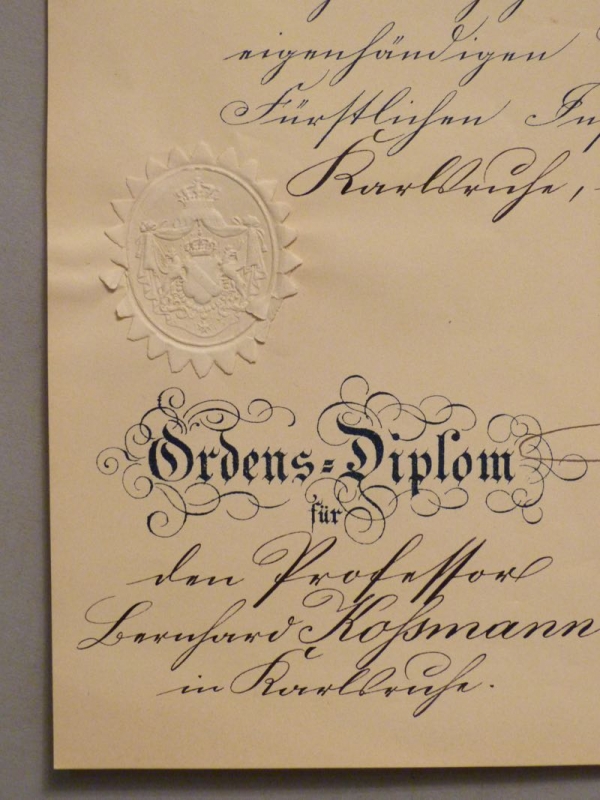 eigenhändigen
Fürstlichen
Karlsruhe,
Ordens-Diplom
für
den Professor
Bernhard Koßmann
in Karlsruhe.